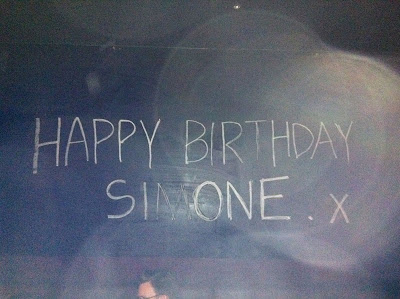 HAPPY BIRTHDAY
SIMONE. X